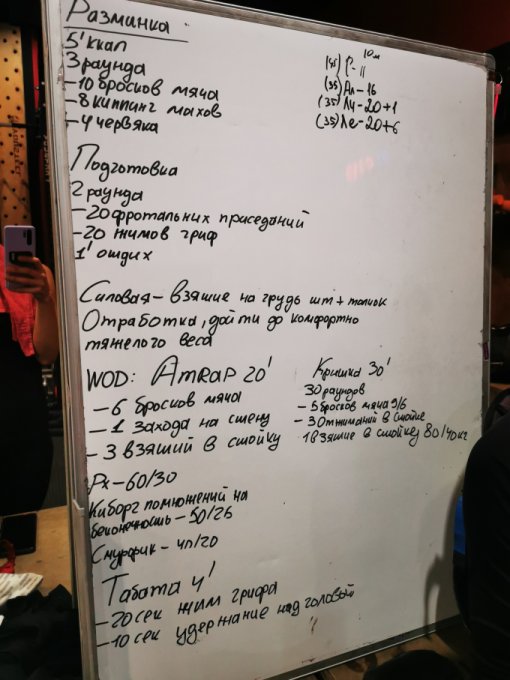 Разминка
5' ккал
3 раунда
-10 бросков мяча
-8 киппинг махов
-4 червяка
10м
-11
(35) Ал-16
(35) Лу-20+1
(35) Ле-20+6
Подготовка
2 раунда
-20 фротальных приседаний
-20 жимов гриф
1' отдих
Силовая-взятие на грудь шт + толчок
Отработка, дойти до комфортно
тяжелого веса
WOD: AMRAP 20'
-6 бросков мяча
-1 Захода на стену
-3 взятий в стойку
Крышка 30'
30 раундов
-5 бросков мяча 9/6
-3 отжиманий в стойке
1 взятие в стойку 80/40кг
Рх-60/30
Киборг помножений на
бесконечность-50/25
Смурфик-40/20
Табата 4'
-20 сек жим грифа
-10 сек удержание над головой